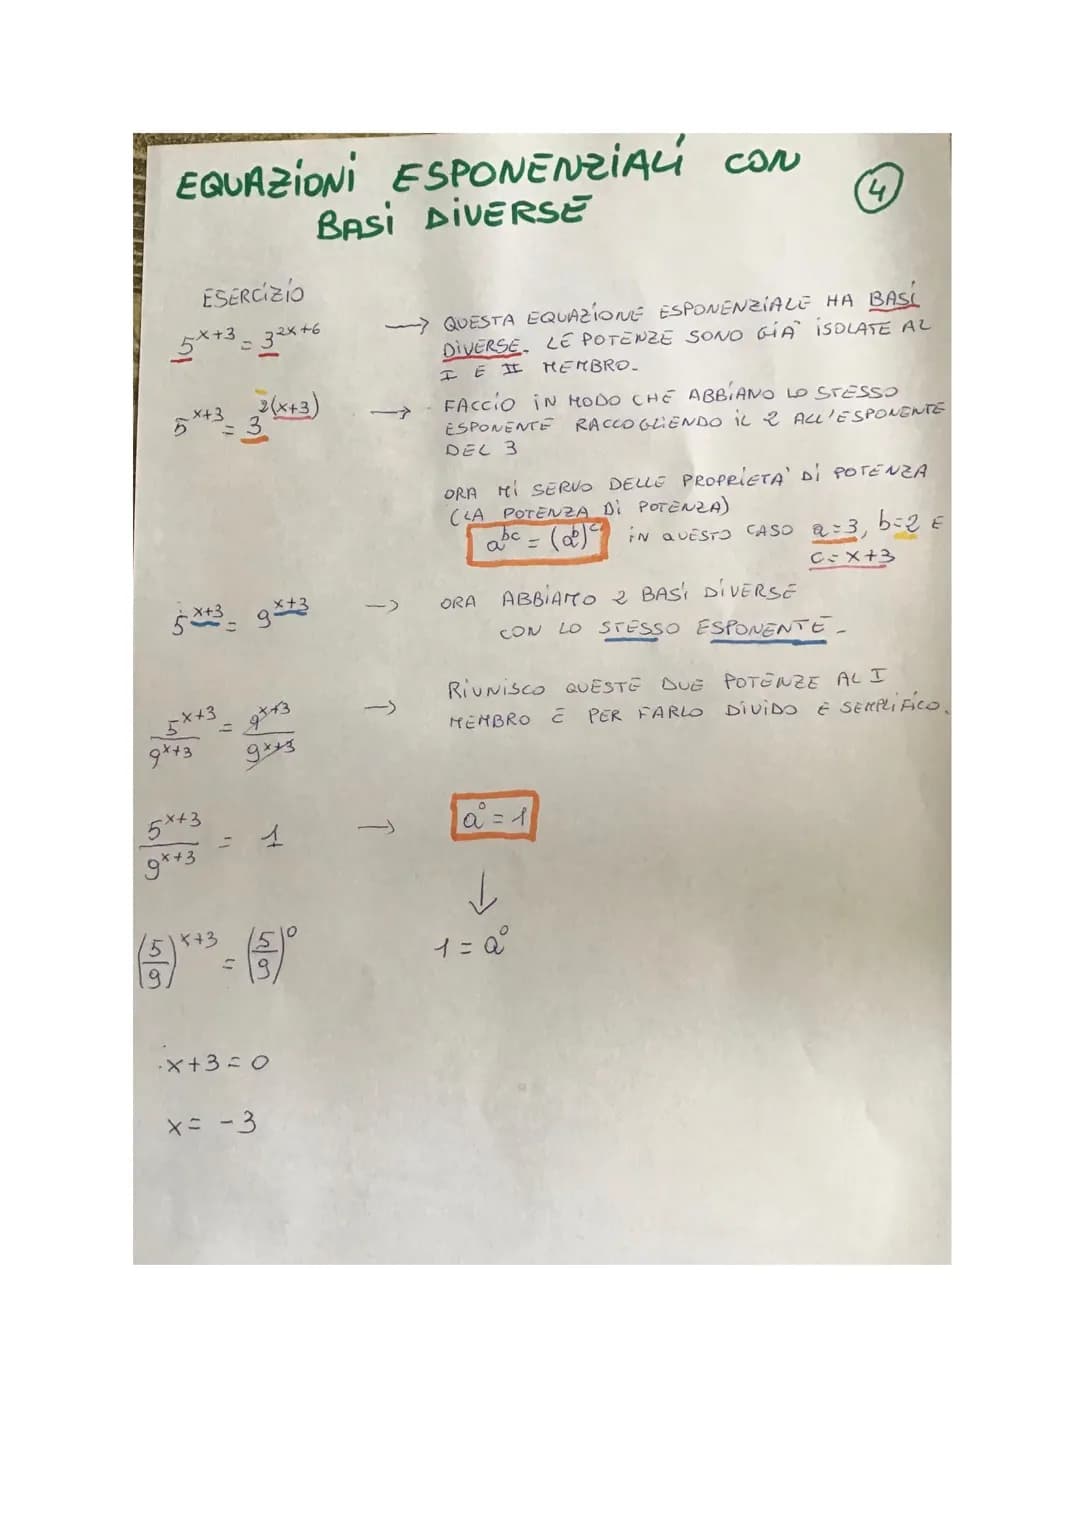 EQUAZIONI ESPONENZIALI CON
BASI DIVERSE
4
ESERCIZIO
5^{x+3} = 3^{2x+6}
→ QUESTA EQUAZIONE ESPONENZIALE HA BASI
DIVERSE. LE POTENZE SONO GIÀ ISOLATE AL
I E II MEMBRO.
5^{x+3} = 3^{2(x+3)}
→ FACCIO IN MODO CHE ABBIANO LO STESSO
ESPONENTE RACCOGLIENDO IL 2 ALL'ESPONENTE
DEL 3
ORA MI SERVO DELLE PROPRIETA' DI POTENZA
(LA POTENZA DI POTENZA)
a^{bc} = (a^b)^c IN QUESTO CASO a=3, b=2 E
c=x+3
5^{x+3} = 9^{x+3}
→ ORA ABBIAMO 2 BASI DIVERSE
CON LO STESSO ESPONENTE.
5^{x+3}/9^{x+3} = 9^{x+3}/9^{x+3}
→ RIUNISCO QUESTE DUE POTENZE AL I
MEMBRO E PER FARLO DIVIDO E SEMPLIFICO.
5^{x+3}/9^{x+3} = 1 → a^0 = 1
↓
(5/9)^{x+3} = (5/9)^0
1 = a^0
x+3=0
x= -3